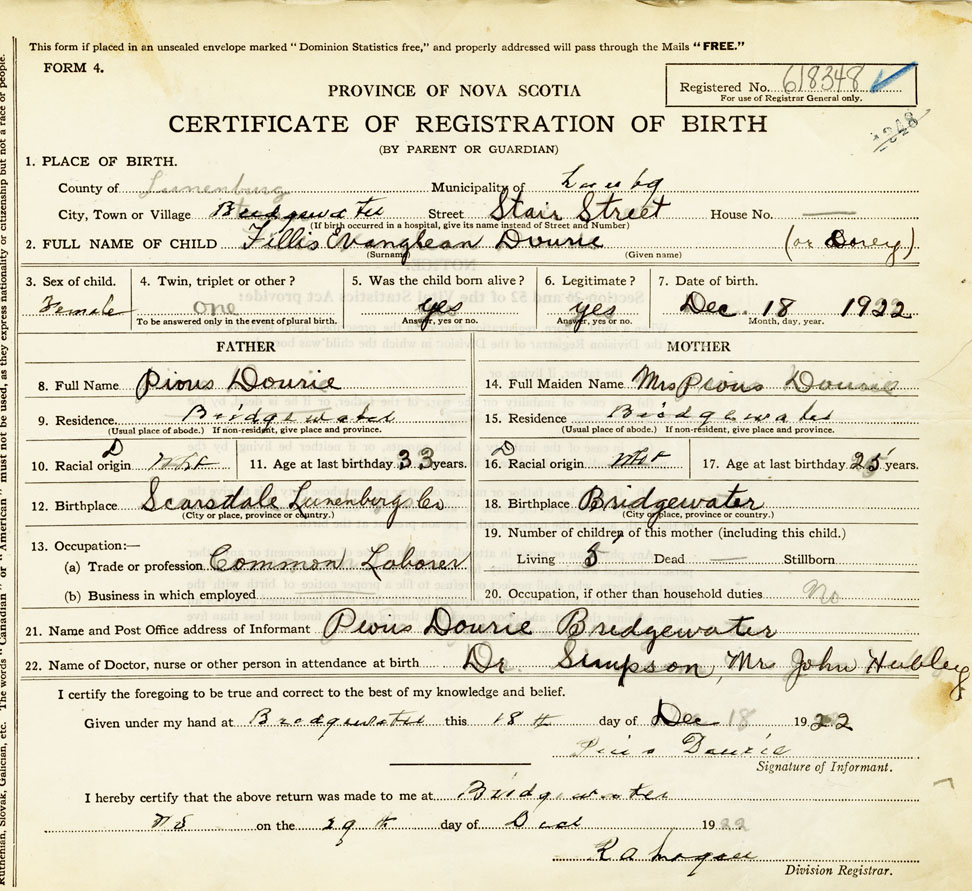 This form if placed in an unsealed envelope marked "Dominion Statistics free," and properly addressed will pass through the Mails "FREE."
FORM 4.
Registered No. 618348
For use of Registrar General only.
PROVINCE OF NOVA SCOTIA
CERTIFICATE OF REGISTRATION OF BIRTH
1248
(BY PARENT OR GUARDIAN)
1. PLACE OF BIRTH.
County of Lunenburg Municipality of
City, Town or Village Bridgewater Street Stair Street House No. —
(If birth occurred in a hospital, give its name instead of Street and Number)
2. FULL NAME OF CHILD Fillis Evanglean Dourie (or Dorey)
(Surname) (Given name)
3. Sex of child. 4. Twin, triplet or other? 5. Was the child born alive? 6. Legitimate? 7. Date of birth.
Female one yes yes Dec. 18 1922
To be answered only in the event of plural birth. Answer, yes or no. Answer, yes or no. Month, day, year.
FATHER MOTHER
8. Full Name Pious Dourie 14. Full Maiden Name Mrs Pious Dourie
9. Residence Bridgewater 15. Residence Bridgewater
(Usual place of abode.) If non-resident, give place and province. (Usual place of abode.) If non-resident, give place and province.
D D
10. Racial origin 11. Age at last birthday 33 years. 16. Racial origin 17. Age at last birthday 25 years.
12. Birthplace Scarsdale Lunenberg Co 18. Birthplace Bridgewater
(City or place, province or country.) (City or place, province or country.)
13. Occupation:— 19. Number of children of this mother (including this child.)
(a) Trade or profession Common Laborer Living 5 Dead — Stillborn
(b) Business in which employed 20. Occupation, if other than household duties No
21. Name and Post Office address of Informant Pious Dourie Bridgewater
22. Name of Doctor, nurse or other person in attendance at birth Dr Simpson, Mrs John Hubley
I certify the foregoing to be true and correct to the best of my knowledge and belief.
Given under my hand at Bridgewater this 18th day of Dec 18 1922
Pius Dourie
Signature of Informant.
I hereby certify that the above return was made to me at Bridgewater
NS on the 29th day of Dec 1922
Division Registrar.
Ruthenian, Slovak, Galician, etc. The words "Canadian" or "American" must not be used, as they express nationality or citizenship but not a race or people.